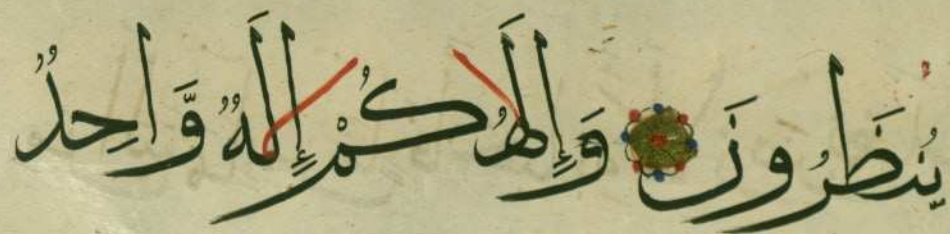 يُنظَرُونَ وَإِلَٰهُكُمْ إِلَٰهٌ وَّاحِدٌ